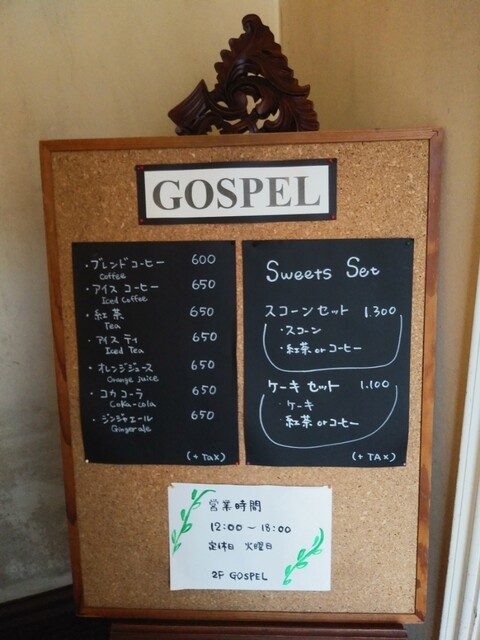 GOSPEL
・ブレンドコーヒー 600
Coffee
・アイス コーヒー 650
Iced Coffee
・紅茶 650
Tea
・アイス ティ 650
Iced Tea
・オレンジジュース 650
Orange Juice
・コカコーラ 650
Coka-cola
・ジンジャエール 650
Ginger ale
(+ Tax)
Sweets Set
スコーンセット 1.300
・スコーン
・紅茶 or コーヒー
ケーキ セット 1.100
・ケーキ
・紅茶 or コーヒー
(+ TAX)
営業時間
12:00 〜 18:00
定休日 火曜日
2F GOSPEL